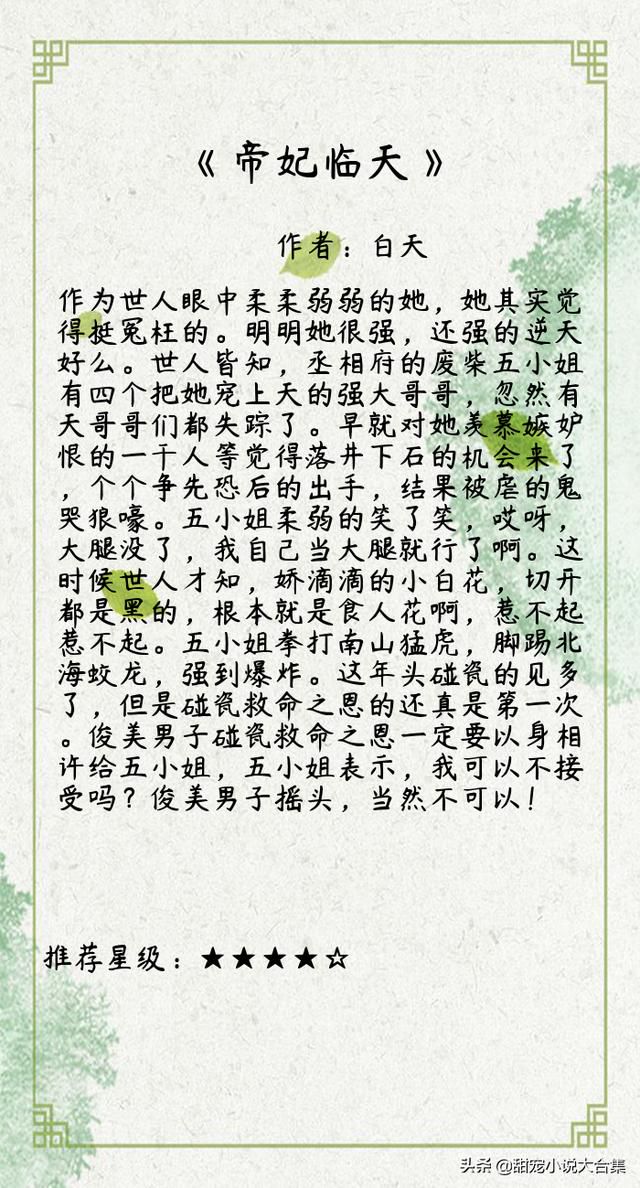 《帝妃临天》
作者：白天
作为世人眼中柔柔弱弱的她，她其实觉
得挺冤枉的。明明她很强，还强的逆天
好么。世人皆知，丞相府的废柴五小姐
有四个把她宠上天的强大哥哥，忽然有
天哥哥们都失踪了。早就对她羡慕嫉妒
恨的一干人等觉得落井下石的机会来了
，个个争先恐后的出手，结果被虐的鬼
哭狼嚎。五小姐柔弱的笑了笑，哎呀，
大腿没了，我自己当大腿就行了啊。这
时候世人才知，娇滴滴的小白花，切开
都是黑的，根本就是食人花啊，惹不起
惹不起。五小姐拳打南山猛虎，脚踢北
海蛟龙，强到爆炸。这年头碰瓷的见多
了，但是碰瓷救命之恩的还真是第一次
。俊美男子碰瓷救命之恩一定要以身相
许给五小姐，五小姐表示，我可以不接
受吗？俊美男子摇头，当然不可以！
推荐星级：★★★★☆
头条@甜宠小说大合集